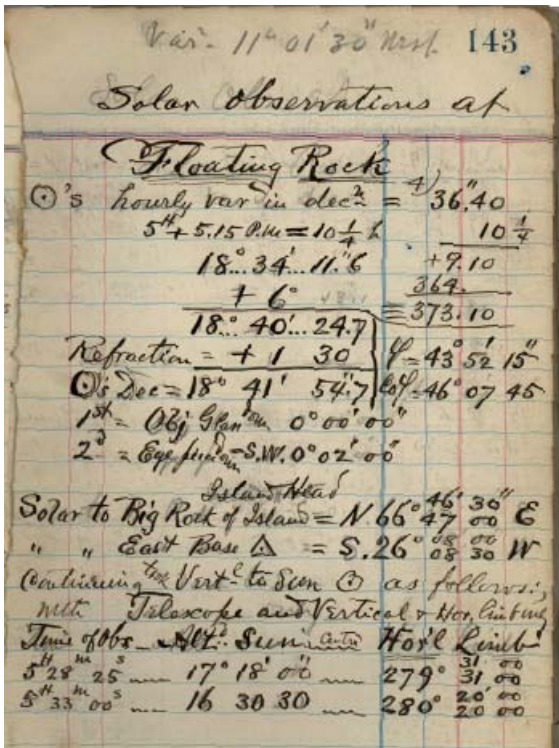 Var. 11° 01' 30" West. 143
Solar Observations at
Floating Rock
☉'s hourly var in decn = 36".40
5H + 5.15 P.M = 10 1/4 h 10 1/4
18°... 34'... 11."6 + 9.10
+ 6° 364.
18°... 40'... 24.7 = 373.10
Refraction = + 1 30 φ = 43° 52' 15"
☉'s Dec = 18° 41' 54".7 Coφ = 46° 07 45
1st = Obj Glass 0° 00' 00"
2d = Eye S.W. 0° 02' 00"
Island Head
Solar to Big Rock of Island = N. 66° 46' 30" 47 00 E
" " East Base △ = S. 26° 08 00 08 30 W
Continuing Vertc to Sun ☉ as follows;
with Telescope and Vertical & Hor. limb
Time of Obs Altd Sun Hor'l Limb
5H 28m 25s 17° 18' 00" 279° 31 00 31 00
5H 33m 00s 16 30 30 280° 20' 00 20 00